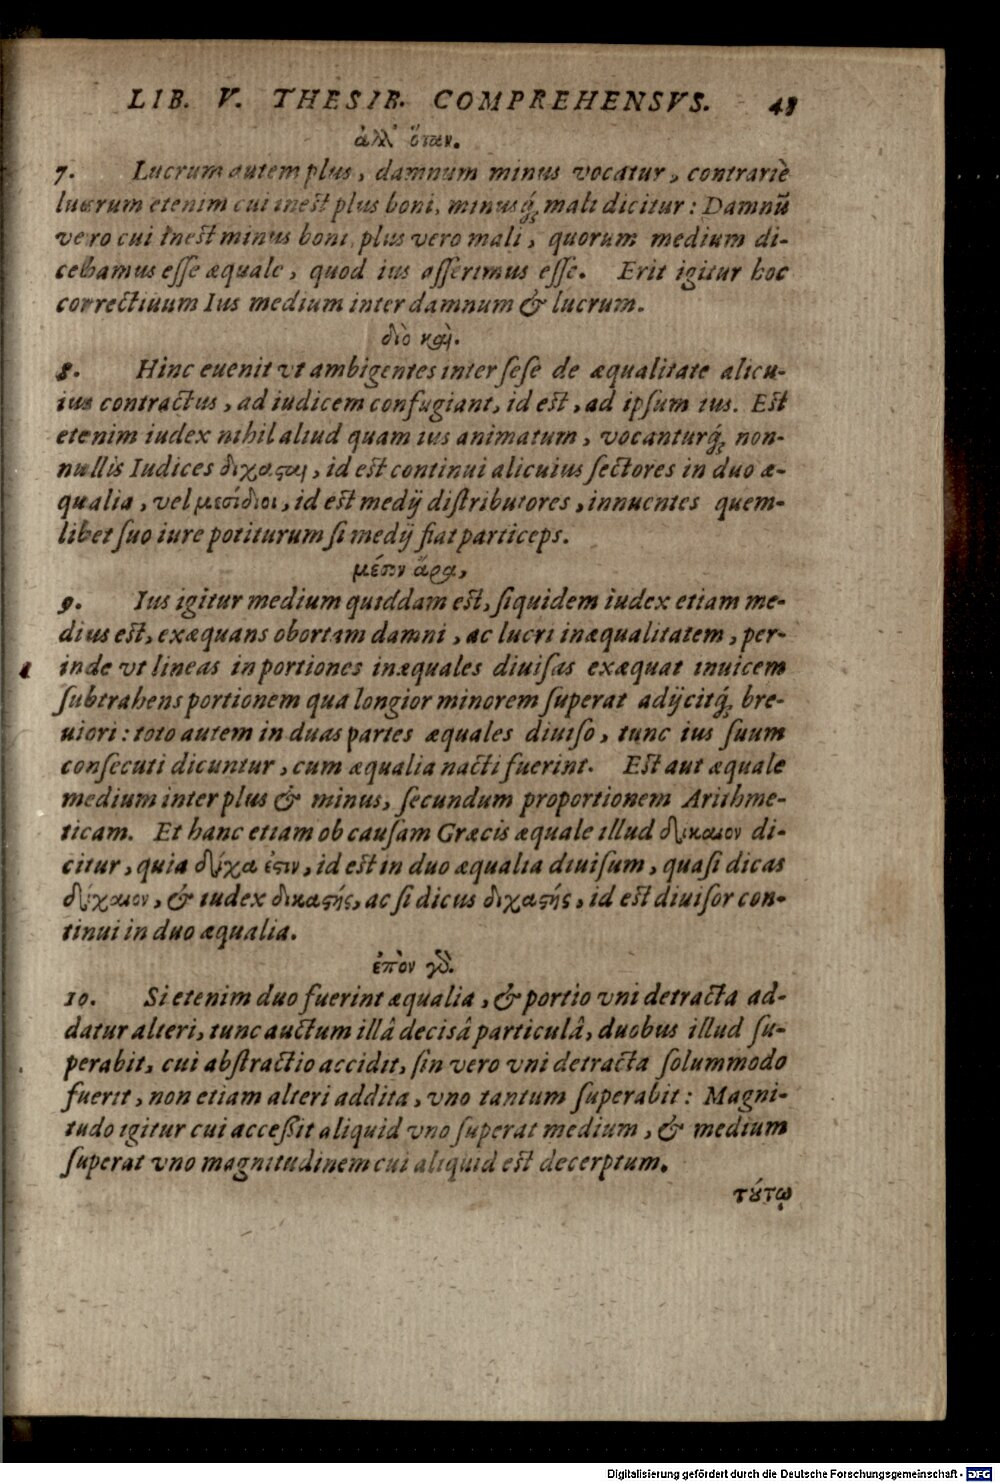 LIB. V. THESIB. COMPREHENSVS. 48
ἀλλ' ὅταν.
7. Lucrum autem plus, damnum minus vocatur, contrariè
lucrum etenim cui inest plus boni, minusq́; mali dicitur: Damnū
vero cui inest minus boni, plus vero mali, quorum medium di-
cebamus esse æquale, quod ius asserimus esse. Erit igitur hoc
correctiuum Ius medium inter damnum & lucrum.
διὸ καὶ.
8. Hinc euenit vt ambigentes inter sese de æqualitate alicu-
ius contractus, ad iudicem confugiant, id est, ad ipsum ius. Est
etenim iudex nihil aliud quam ius animatum, vocanturq́; non-
nullis Iudices διχασταὶ, id est continui alicuius sectores in duo æ-
qualia, vel μεσίδιοι, id est medij distributores, innuentes quem-
libet suo iure potiturum si medij fiat particeps.
μέσον ἄρα,
9. Ius igitur medium quiddam est, siquidem iudex etiam me-
dius est, exæquans obortam damni, ac lucri inæqualitatem, per-
inde vt lineas in portiones inæquales diuisas exæquat inuicem
subtrahens portionem qua longior minorem superat adijcitq́; bre-
uiori: toto autem in duas partes æquales diuiso, tunc ius suum
consecuti dicuntur, cum æqualia nacti fuerint. Est aut æquale
medium inter plus & minus, secundum proportionem Arithme-
ticam. Et hanc etiam ob causam Græcis æquale illud δίκαιον di-
citur, quia δίχα ἐστιν, id est in duo æqualia diuisum, quasi dicas
δίχαιον, & iudex δικαστής, ac si dicus διχαστής, id est diuisor con-
tinui in duo æqualia.
ἐπὰν γὸ.
10. Si etenim duo fuerint æqualia, & portio vni detracta ad-
datur alteri, tunc auctum illâ decisâ particulâ, duobus illud su-
perabit, cui abstractio accidit, sin vero vni detracta solummodo
fuerit, non etiam alteri addita, vno tantum superabit: Magni-
tudo igitur cui accessit aliquid vno superat medium, & medium
superat vno magnitudinem cui aliquid est decerptum.
τούτῳ
Digitalisierung gefördert durch die Deutsche Forschungsgemeinschaft - DFG